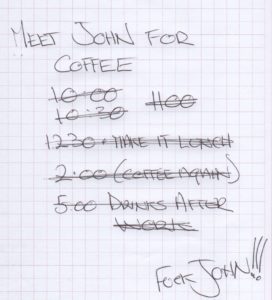 MEET JOHN FOR
COFFEE
10:00 1100
10:30
1230 - MAKE IT LUNCH
2.00 (COFFEE AGAIN)
5.00 DRINKS AFTER
WORK
FUCK JOHN!!!